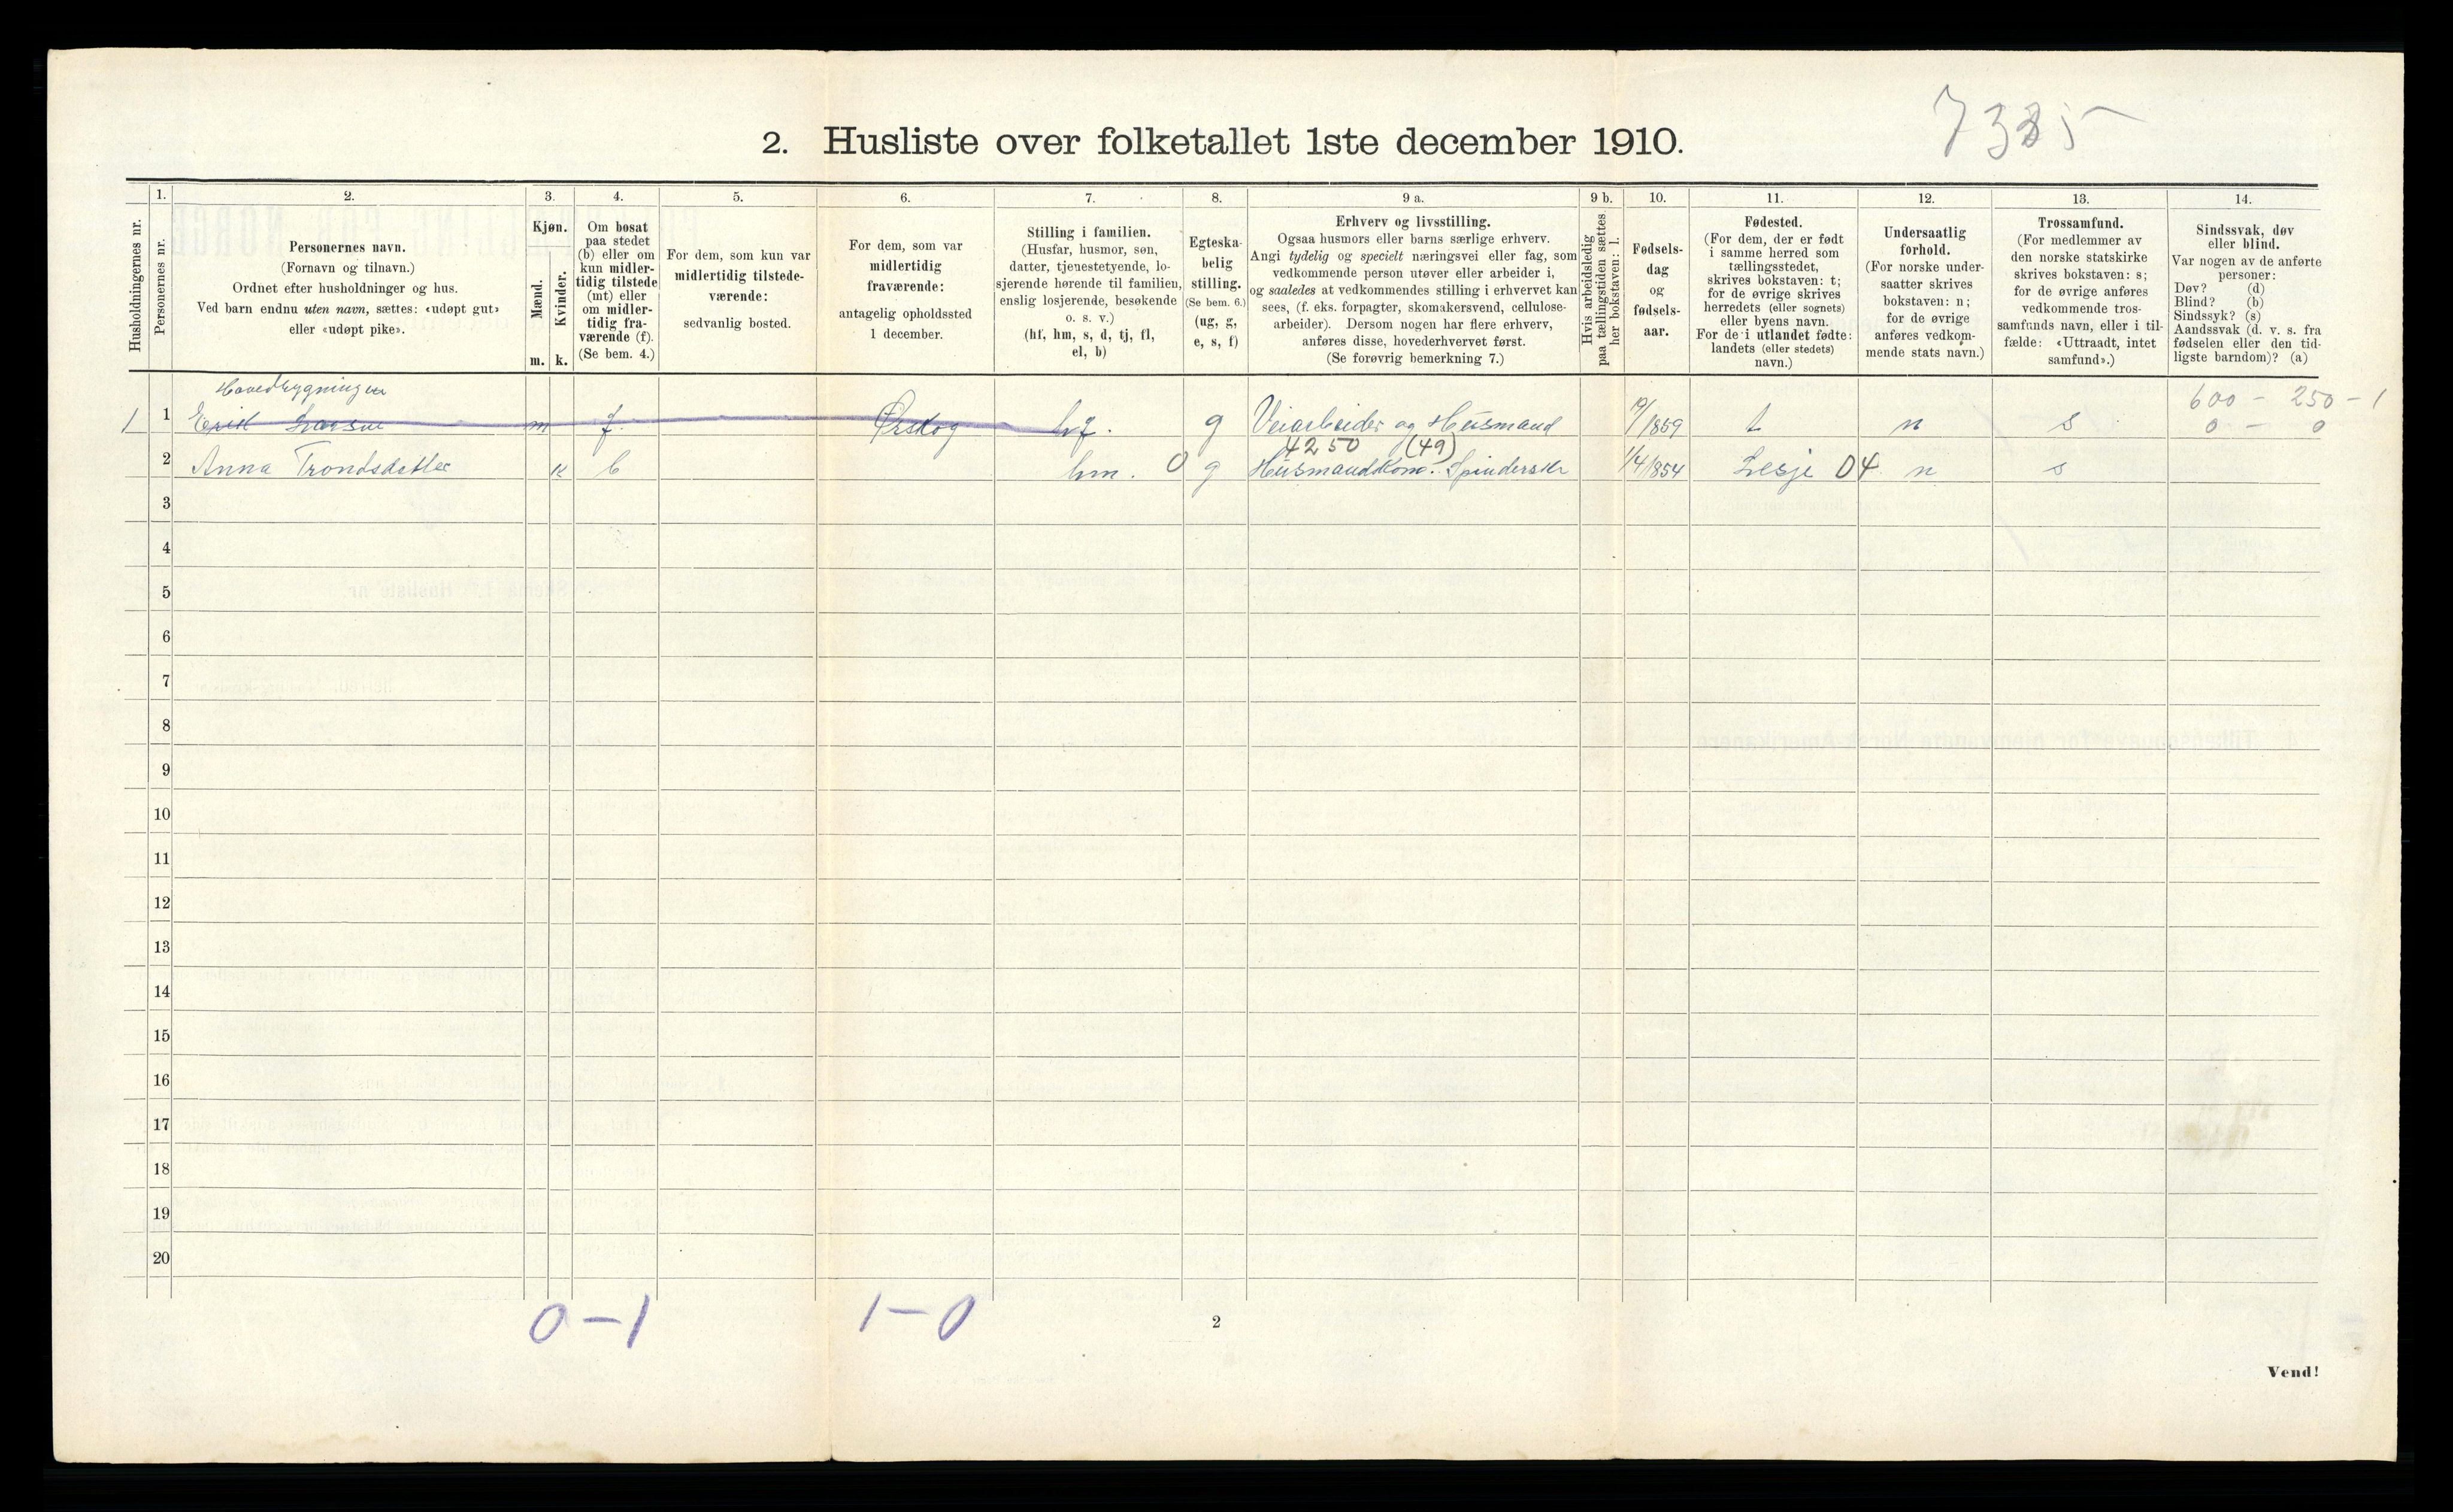 7325
2. Husliste over folketallet 1ste december 1910.
Husholdningernes nr.
1.
Personernes nr.
2.
Personernes navn.
(Fornavn og tilnavn.)
Ordnet efter husholdninger og hus.
Ved barn endnu uten navn, sættes: «udøpt gut»
eller «udøpt pike».
3.
Kjøn.
Mænd.
m.
Kvinder.
k.
4.
Om bosat
paa stedet
(b) eller om
kun midler-
tidig tilstede
(mt) eller
om midler-
tidig fra-
værende (f).
(Se bem. 4.)
5.
For dem, som kun var
midlertidig tilstede-
værende:
sedvanlig bosted.
6.
For dem, som var
midlertidig
fraværende:
antagelig opholdssted
1 december.
7.
Stilling i familien.
(Husfar, husmor, søn,
datter, tjenestetyende, lo-
sjerende hørende til familien,
enslig losjerende, besøkende
o. s. v.)
(hf, hm, s, d, tj, fl,
el, b)
8.
Egteska-
belig
stilling.
(Se bem. 6.)
(ug, g,
e, s, f)
9 a.
Erhverv og livsstilling.
Ogsaa husmors eller barns særlige erhverv.
Angi tydelig og specielt næringsvei eller fag, som
vedkommende person utøver eller arbeider i,
og saaledes at vedkommendes stilling i erhvervet kan
sees, (f. eks. forpagter, skomakersvend, cellulose-
arbeider). Dersom nogen har flere erhverv,
anføres disse, hovederhvervet først.
(Se forøvrig bemerkning 7.)
9 b.
Hvis arbeidsledig
paa tællingstiden sættes
her bokstaven: l.
10.
Fødsels-
dag
og
fødsels-
aar.
11.
Fødested.
(For dem, der er født
i samme herred som
tællingsstedet,
skrives bokstaven: t;
for de øvrige skrives
herredets (eller sognets)
eller byens navn.
For de i utlandet fødte:
landets (eller stedets)
navn.)
12.
Undersaatlig
forhold.
(For norske under-
saatter skrives
bokstaven: n;
for de øvrige
anføres vedkom-
mende stats navn.)
13.
Trossamfund.
(For medlemmer av
den norske statskirke
skrives bokstaven: s;
for de øvrige anføres
vedkommende tros-
samfunds navn, eller i til-
fælde: «Uttraadt, intet
samfund».)
14.
Sindssvak, døv
eller blind.
Var nogen av de anførte
personer:
Døv? (d)
Blind? (b)
Sindssyk? (s)
Aandssvak (d. v. s. fra
fødselen eller den tid-
ligste barndom)? (a)
Hovedbygningen
600 - 250 - 1
1 1 Erik Larsen m f. Ørskog hf. g Veiarbeider og Husmand /1859 t n s 0 - 0
4250 (49)
2 Anna Trondsdatter k b hm. 0 g Husmandskone. Spinderske 1/4 1854 Lesje 04 n s
3
4
5
6
7
8
9
10
11
12
13
14
15
16
17
18
19
20
0-1 1-0
2
Vend!